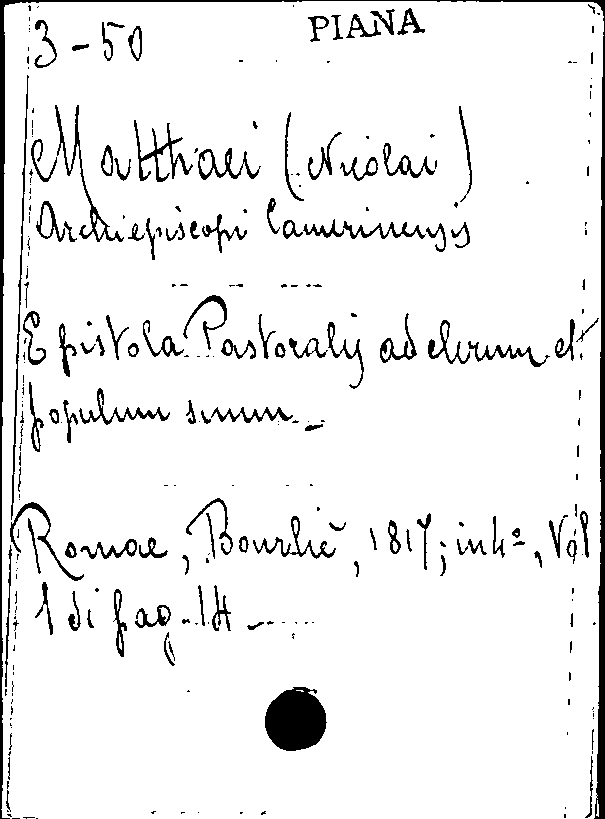 3-50 PIANA
Matthaei (Nicolai)
Archiepiscopi Camerinensis
Epistola Pastoralis ad clerum et
populum suum_
Romae, Bourliè, 1817; in 4º, Vol
1 di pag. 14_